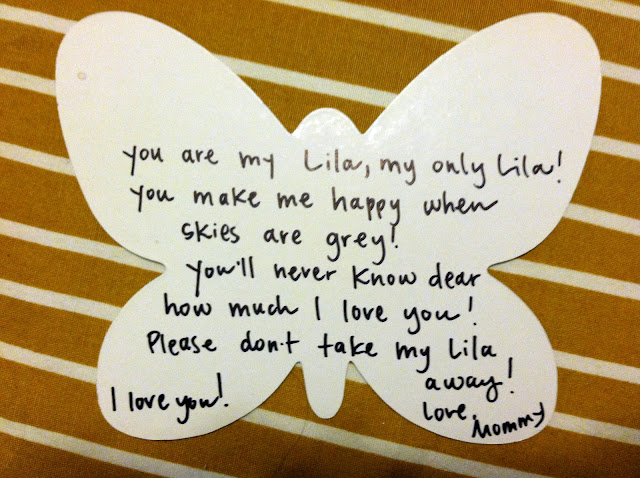 you are my Lila, my only Lila!
you make me happy when
skies are grey!
You'll never know dear
how much I love you!
Please don't take my Lila
away!
I love you!
Love, Mommy